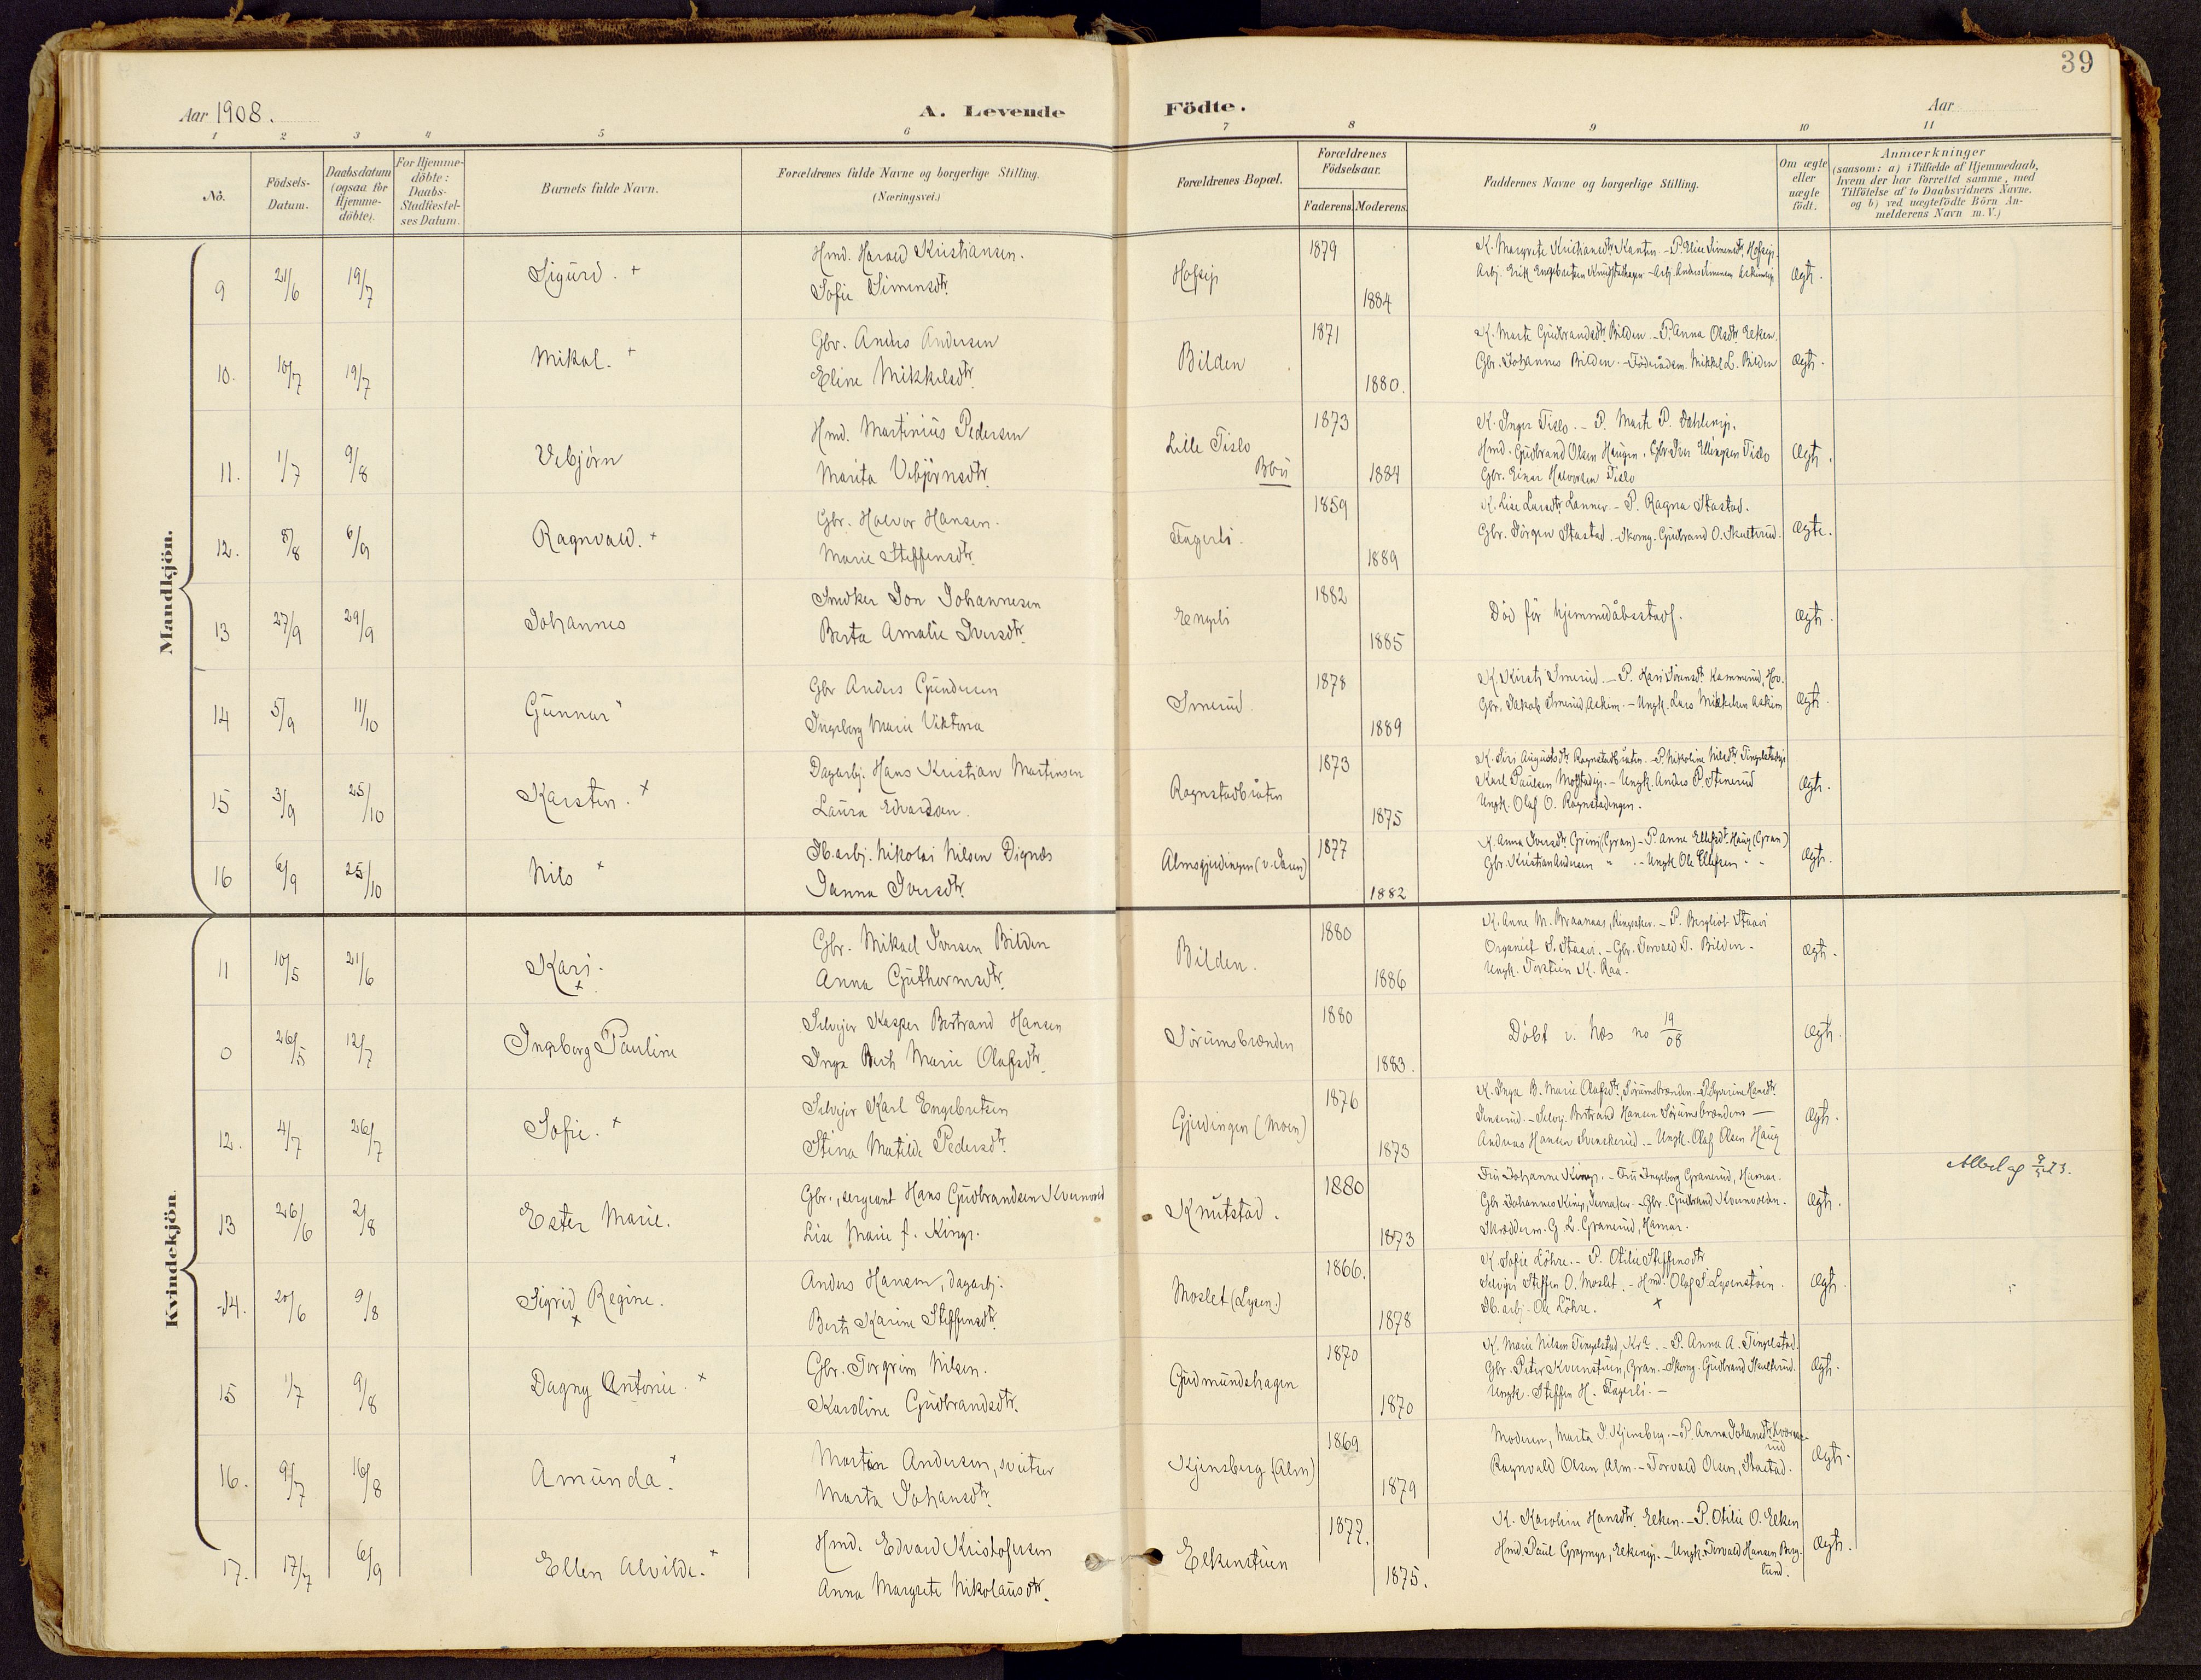 39
Aar 1908.
A. Levende Födte.
Aar
1 2 3 4 5 6 7 8 9 10 11
No.
Födsels-Datum.
Daabsdatum (ogsaa for Hjemme-döbte).
For Hjemme-döbte: Daabs-Stadfæstel-ses Datum.
Barnets fulde Navn.
Forældrenes fulde Navne og borgerlige Stilling. (Næringsvei.)
Forældrenes Bopæl.
Forældrenes Födselsaar.
Faderens. Moderens.
Faddernes Navne og borgerlige Stilling.
Om ægte eller uægte födt.
Anmærkninger
(saasom: a) i Tilfælde af Hjemmedaab,
hvem der har forrettet samme, med
Tilföielse af to Daabsvidners Navne.
og b) ved uægtefödte Börn An-
melderens Navn m. V.)
Mandkjön.
9 21/6 19/7 Sigurd. + Hmd. Harald Kristiansen. 1879
Sofie Simensdtr. 1884 Ægte.
10. 10/7 19/7 Mikal. + Gbr. Anders Andersen Bilden 1871 K. Marte Gudbrandsdtr. Bilden. - P. Anna Olsdtr. Elken.
Eline Mikkelsdtr. 1880. Gbr. Johannes Bilden. - Föderådsm. Mikkel L. Bilden Ægte.
11. 1/7 9/8 Vebjörn Hmd. Martinius Pedersen Lille Tislo 1873 K. Inger Tislo. - P. Marte P. Dahleneje.
Marita Vebjörnsdtr. 1884 Hmd. Gudbrand Olsen Haugen. Gbr. Iver Ellingsen Tislo Ægte.
Gbr. Einar Halvorsen Tislo
12. 8/8 6/9 Ragnvald. + Gbr. Halvor Hansen. Fagerli. 1859 K. Lise Larsdtr. Lanner - P. Ragna Stastad.
Marie Steffensdtr. 1889 Gbr. Jörgen Stastad. - Skomg. Gudbrand O. Skutterud. Ægte.
13 27/9 29/9 Johannes Snedker Jon Johannesen Engeli 1882 Död för hjemmedåbsstadf.
Berta Amalie Iversdtr. 1885 Ægte.
14 5/9 11/10 Gunnar Gbr Anders Gundersen Smerud. 1878 K. Kirsti Smerud. - P. Kari Iversdtr. Kammerud, Hov.
Ingeborg Marie Viktoria 1889 Gbr. Jakob Smerud, Askim. - Ungk. Lars Mikkelsen Askim Ægte.
15 3/9 25/10 Karsten. + Dagarbj. Hans Kristian Martinsen Rognstadbråten 1873 K. Siri Augustsdtr. Rognstadbråten. - P. Nikoline Nilsdtr. Tingelstadeje
Laura Edvardsen. 1875 Karl Paulsen - Ungk. Anders P. Stenerud Ægte.
Ungk. Olaf O. Rognstadengen.
16 6/9 25/10 Nils + Jb.arbj. Nikolai Nilsen Dignæs Almsgjerdingen (v. Jaren) 1877 K. Anna Iversdtr. Grini (Gran) - P. Anne Ellefsdtr. Haug (Gran)
Janna Iversdtr. 1882 Gbr. Kristian Andersen " - Ungk. Ole Ellefsen " " Ægte.
Kvindekjön.
11 10/5 21/6 Kari. + Gbr. Mikael Iversen Bilden Bilden. 1880 K. Anne M. Braanaas, Ringsaker. - P. Bergliot Staavi
Anna Guthormsdtr. 1886 Organist S. Staavi. - Gbr. Torvald T. Bilden. Ægte.
Ungk. Torstein K. Raa.
0 26/5 12/7 Ingeborg Pauline Selvejer Kasper Bertrand Hansen Sörumsbrænden 1880 Döbt i Næs no 19/08
Inga Berth Marie Olafsdtr. 1883. Ægte.
12. 4/7 26/7 Sofie. + Selvejer Karl Engebretsen Gjerdingen (Moen) 1876 K. Inga B. Marie Olafsdtr. Sörumsbrænden. -
Stina Matilde Pedersdtr. 1873 - Selvej. Bertrand Hansen Sörumsbrænden - Ægte.
Andreas Hansen Svenskerud. - Ungk. Olaf Olsen Haug
13 26/6 2/8 Ester Marie. Gbr., sergeant Hans Gudbrandsen Kvernvold Knutstad. 1880 Fru Johanne Kinge. - Fru Ingeborg Granerud, Hamar.
Lise Marie f. Kinge. 1873 Gbr. Johannes Kinge, - Gbr. Gudbrand Kvernvolden. Ægte.
Skræderm. G. L. Granerud, Hamar.
14. 20/6 9/8 Sigrid Regine. + Anders Hansen, dagarbj. Moslet (Lysen.) 1866. K. Sofie Löhre. - P. Otilie Steffensdtr.
Berte Karine Steffensdtr. 1878 Selvejer Steffen O. Moslet. - Hmd. Olaf S. Lysenstöen. Ægte.
Jb. arbj. Ole Löhre. +
15 1/7 9/8 Dagny Antonie. + Gbr. Torgrim Nilsen. Gudmundshagen 1870 K. Marie Nilsen Tingelstad, Kra. - P. Anna A. Tingelstad.
Karoline Gudbrandsdtr. 1870 Gbr. Peter Kvernstuen, Gran. - Skomg. Gudbrand Skutterud. Ægte.
Ungk. Steffen H. Fagerli. -
16. 9/7 16/8 Amunda. + Martin Andersen, sveitser Kjensberg (Alm) 1869 Moderen, Marta J. Kjensberg. - P. Anna Johansdtr. Kværnerud
Marta Johansdtr. 1879 Ragnvald Olsen, Alm. - Torvald Olsen, Stastad. Ægte.
17. 17/7 6/9 Ellen Alvilde. + Hmd. Edvard Kristofersen Elkenstuen 1877. K. Karoline Hansdtr. Elken. - P. Otilie O. Elken
Anna Margrete Nikolausdtr. 1875. Hmd. Paul Elkeneje. - Ungk. Torvald Hansen Berglund. Ægte.